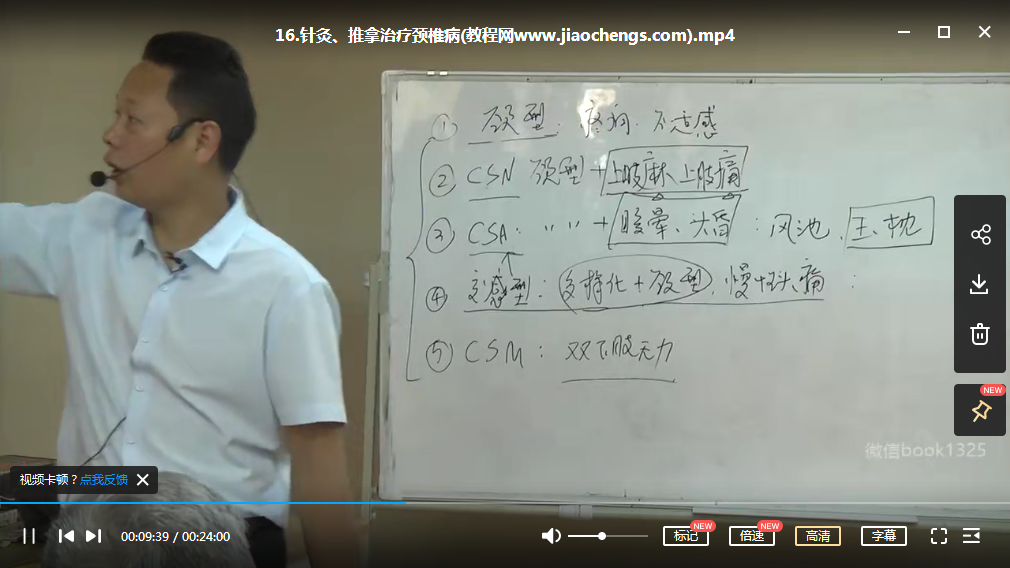 16.针灸、推拿治疗颈椎病(教程网www.jiaochengs.com).mp4
① 颈型：疼痛、不适感
② CSN 颈型+上肢麻木、上肢痛
③ CSA： 〃 〃 + 眩晕、头昏：风池、玉枕
④ 交感型：多样化+颈型、慢性头痛：
⑤ CSM：双下肢无力
NEW
微信book1325
视频卡顿？点我反馈
00:09:39 / 00:24:00
标记 NEW 倍速 NEW 高清 字幕